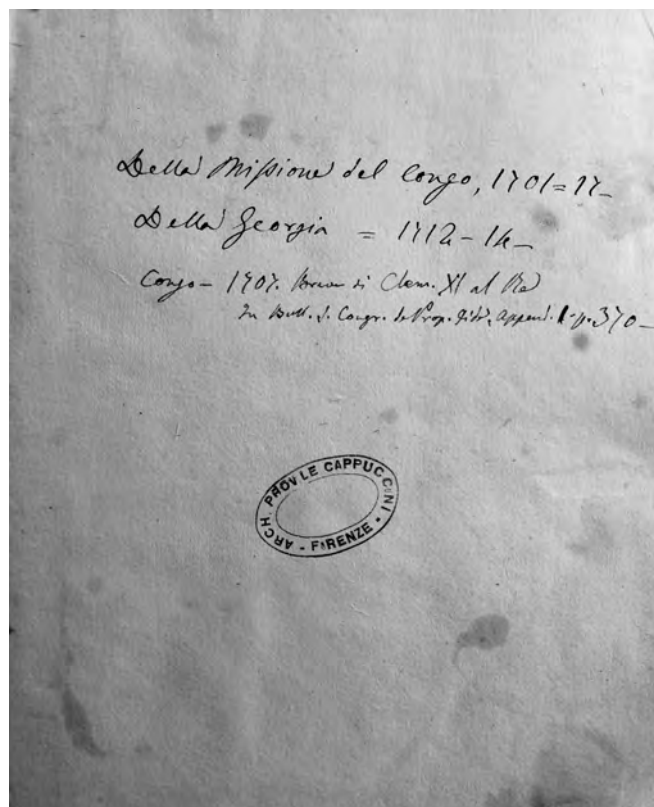 Della Missione del Congo, 1701=17-
Della Georgia = 1712-14-
Congo- 1707. Breve di Clem. XI al Re
In Bull. d. Congr. de Prop. Fide, Append. 1-p. 370-
ARCH. PROV.LE CAPPUCCINI
- FIRENZE -